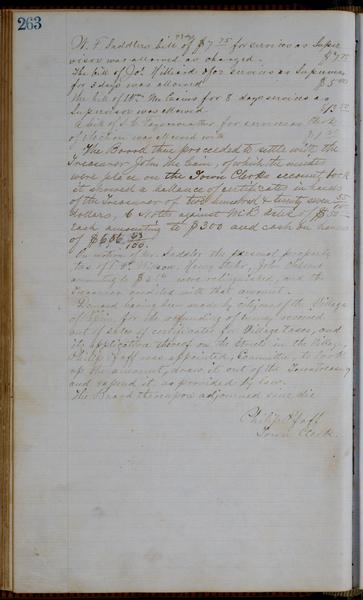 263
W. F. Saddlers bill of $7 75 for services as Super
visor was allowed as charged. $7 75
The bill of Jos Williard for services as Supervisor
for 3 days was allowed $5
The bill of Wm. McCains for 8 days services as
Supervisor was allowed $13
A bill of for services as Clerk
of election was allowed with
The Board then proceeded to settle with the
Treasurer John McCain, of which the minutes
were place on the Town Clerks account book
it showed a ballance of certificates in hands
of the Treasurer of two hundred & twenty seven
dollars, 6 North against bill of
Cash amounting to $300 and cash on hands
of $606 53/100.
On motion of Mr. Saddler the personal property
tax of Wilson, Henry John
amounting to $ were relinquished, and the
Treasurer credited with that amount.
Demand having been made by citizens of the Village
of for the refunding of money received
out of sales of certificates for Village taxes, and
its application thereof on the streets in the Village,
Philip Pfaff was appointed, Committee, to look
up the amount, draw it out of the Treasury
and expend it as provided by law.
The Board thereupon adjourned sine die
Philip Pfaff
Town Clerk.